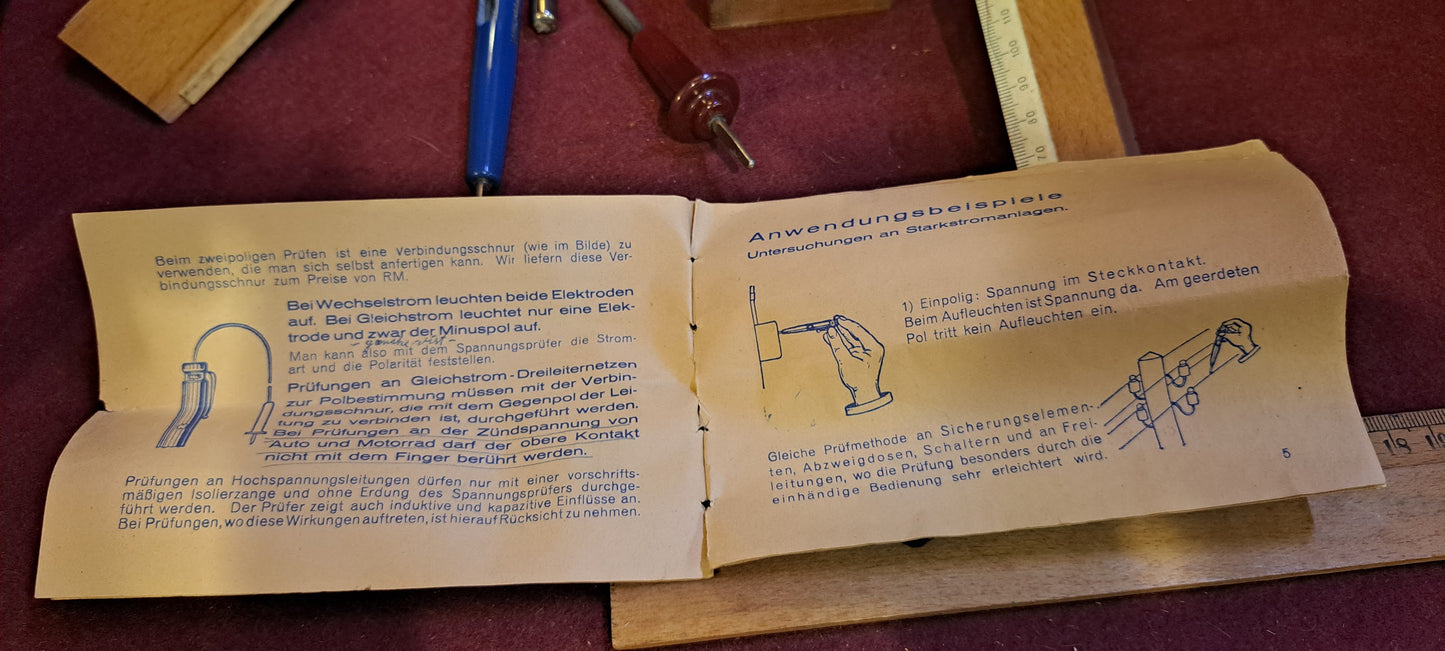 Beim zweipoligen Prüfen ist eine Verbindungsschnur (wie im Bilde) zu
verwenden, die man sich selbst anfertigen kann. Wir liefern diese Ver-
bindungsschnur zum Preise von RM.
Bei Wechselstrom leuchten beide Elektroden
auf. Bei Gleichstrom leuchtet nur eine Elek-
trode und zwar der Minuspol auf.
Man kann also mit dem Spannungsprüfer die Strom-
art und die Polarität feststellen.
Prüfungen an Gleichstrom-Dreileiternetzen
zur Polbestimmung müssen mit der Verbin-
dungsschnur, die mit dem Gegenpol der Lei-
tung zu verbinden ist, durchgeführt werden.
Bei Prüfungen an der Zündspannung von
Auto und Motorrad darf der obere Kontakt
nicht mit dem Finger berührt werden.
Prüfungen an Hochspannungsleitungen dürfen nur mit einer vorschrifts-
mäßigen Isolierzange und ohne Erdung des Spannungsprüfers durchge-
führt werden. Der Prüfer zeigt auch induktive und kapazitive Einflüsse an.
Bei Prüfungen, wo diese Wirkungen auftreten, ist hierauf Rücksicht zu nehmen.
Anwendungsbeispiele
Untersuchungen an Starkstromanlagen.
1) Einpolig: Spannung im Steckkontakt.
Beim Aufleuchten ist Spannung da. Am geerdeten
Pol tritt kein Aufleuchten ein.
Gleiche Prüfmethode an Sicherungselemen-
ten, Abzweigdosen, Schaltern und an Frei-
leitungen, wo die Prüfung besonders durch die
einhändige Bedienung sehr erleichtert wird.
5
110
100
90
80
70
18